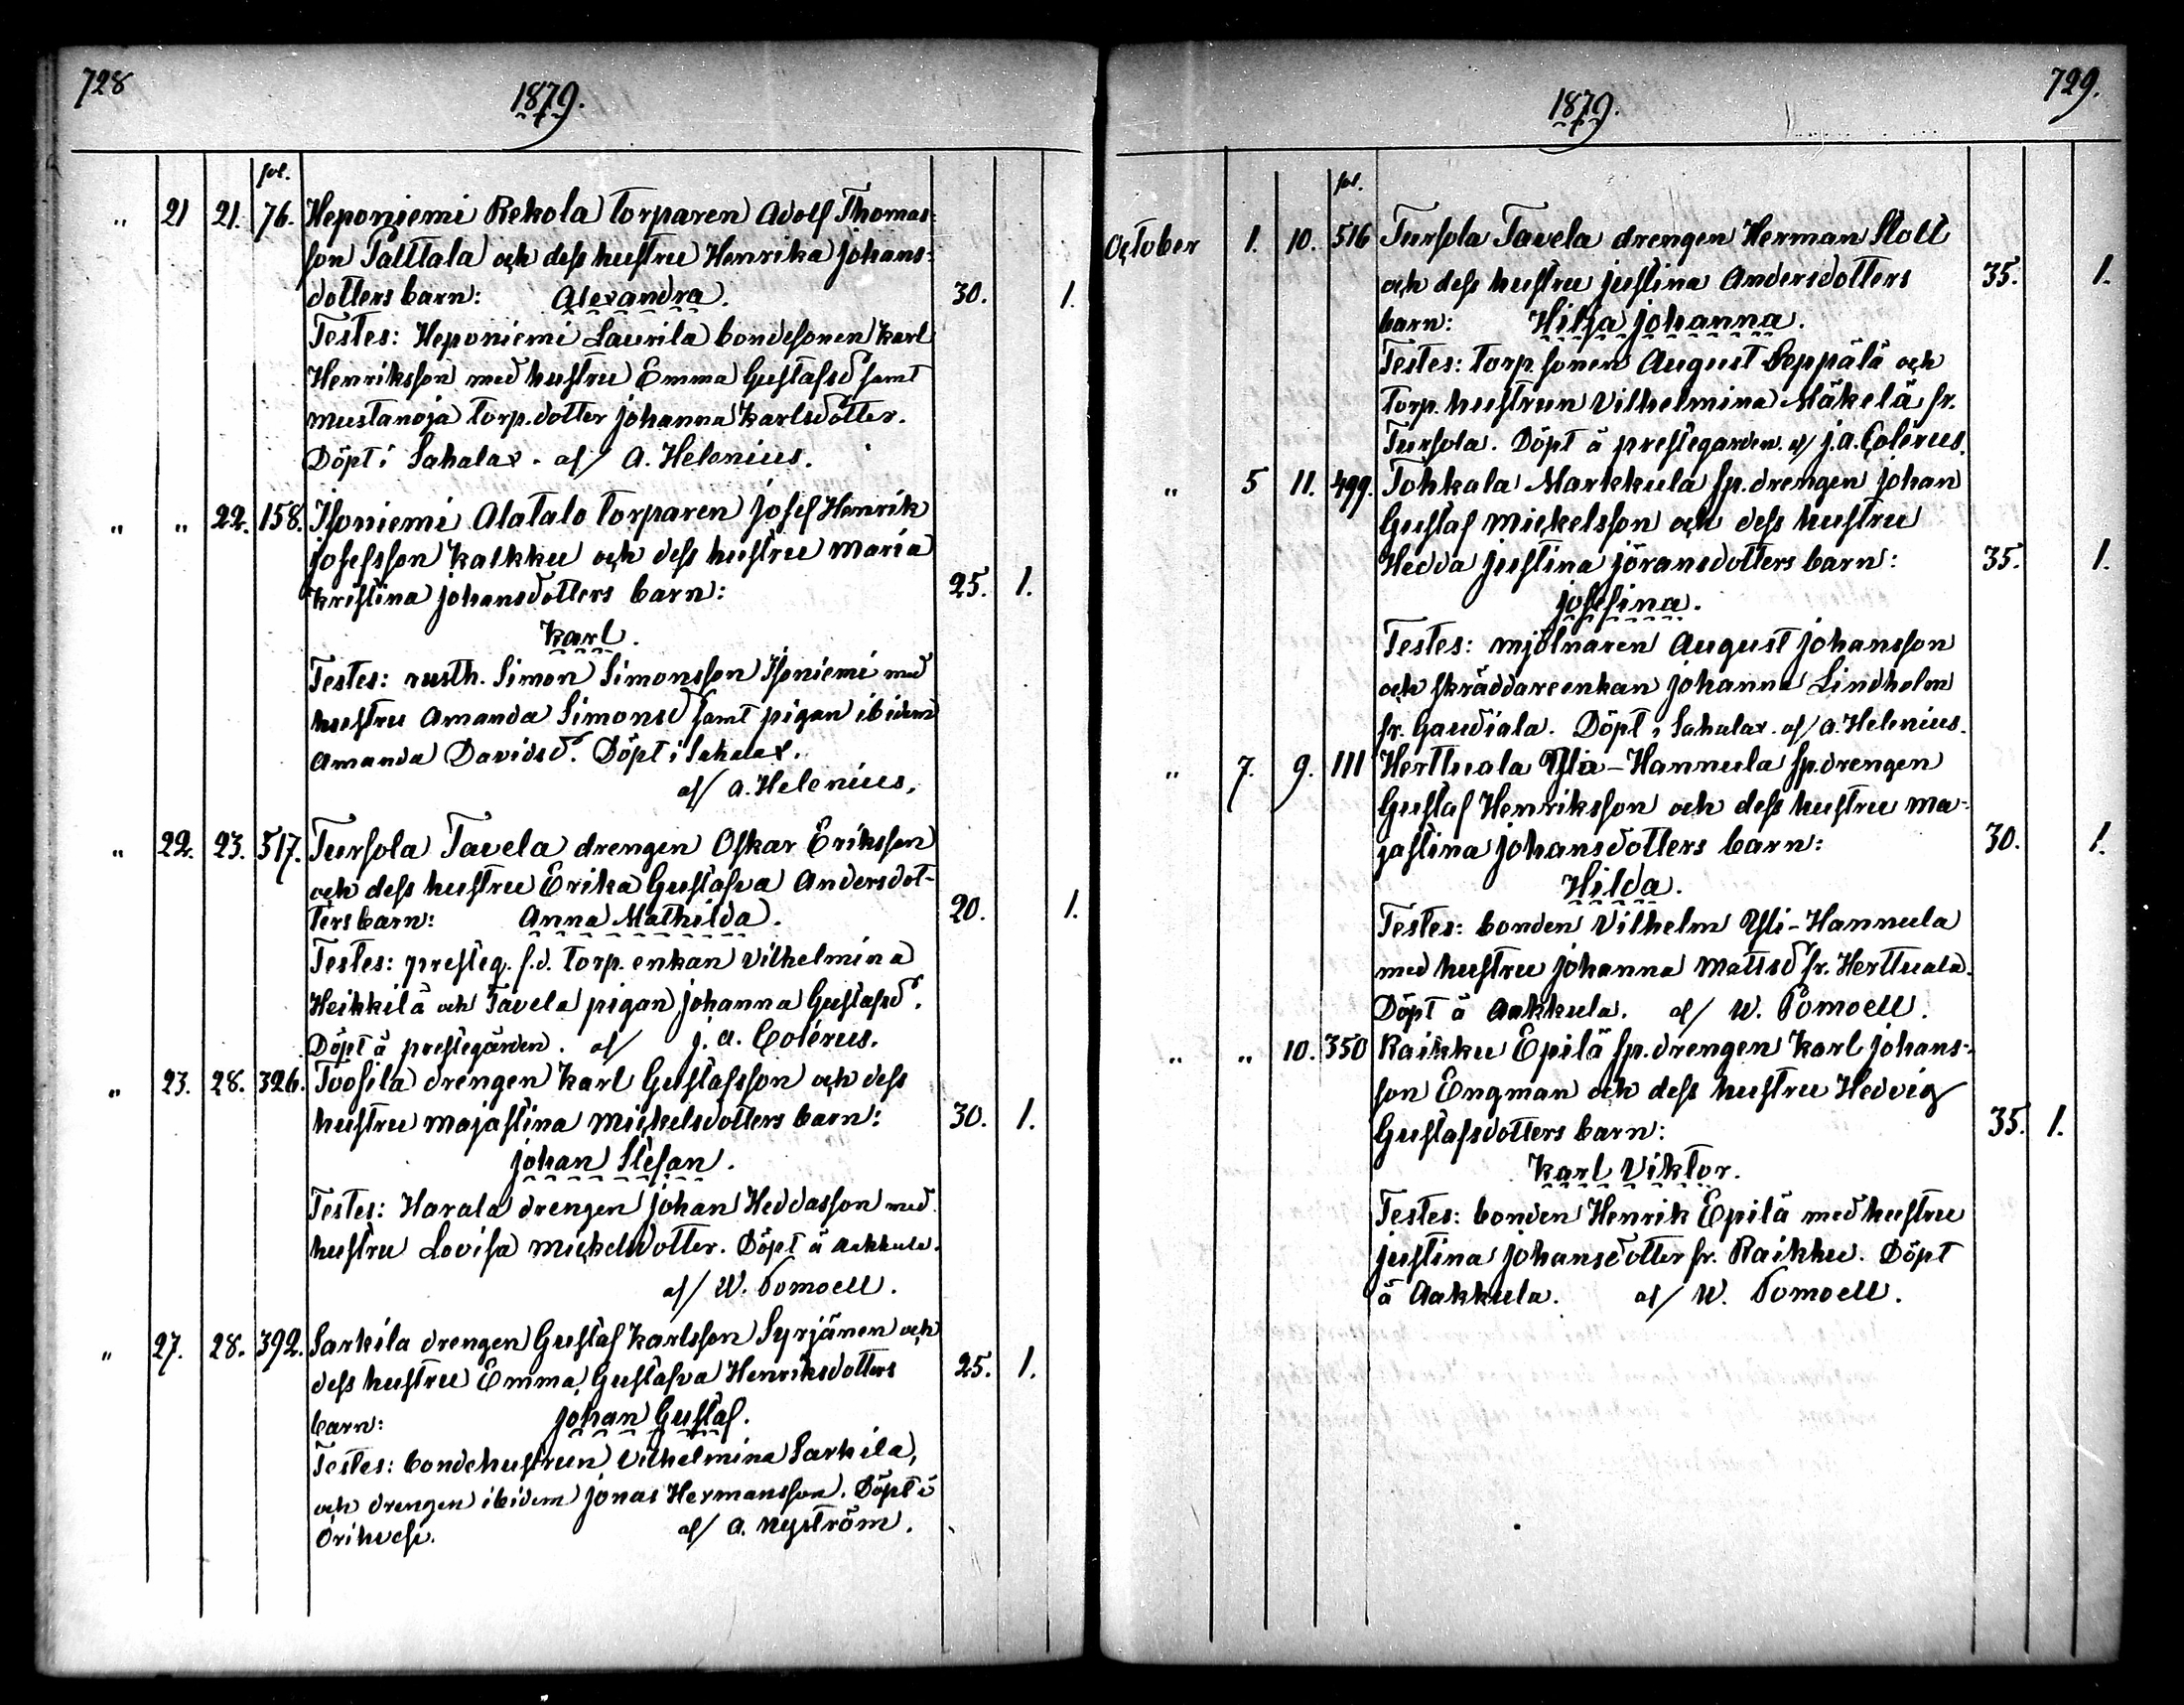 728
1879.
fol.
" 21 21. 76. Heponiemi Rekola torparen Adolf Thomas-
son Palttala och dess hustru Henrika Johans-
dotters barn: Alexandra. 30. 1.
Testes: Heponiemi Laurila bondesonen Karl
Henriksson med hustru Emma Gustafsd samt
Mustanoja torp.dotter Johanna Karlsdotter.
Döpt i Sahalax. af/ A. Helenius.
" " 22. 158. Isoniemi Alatalo torparen Josef Henrik
Josefsson Kalkku och dess hustru Maria
Kristina Johansdotters barn: 25. 1.
Karl.
Testes: rusth. Simon Simonsson Isoniemi med
hustru Amanda Simonsd samt pigan ibidem
Amanda Davidsd. Döpt i Sahalax.
af/ A. Helenius.
" 22. 23. 517. Tursola Tavela drengen Oskar Eriksson
och dess hustru Erika Gustafva Andersdot-
ters barn: Anna Mathilda. 20. 1.
Testes: presteg. f.d. torp. enkan Vilhelmina
Heikkilä och Tavela pigan Johanna Gustafsd.
Döpt å prestegården. af/ J. A. Colérus.
" 23. 28. 326. Tvosila drengen Karl Gustafsson och dess
hustru Majastina Mickelsdotters barn: 30. 1.
Johan Stefan.
Testes: Harala drengen Johan Heddasson med
hustru Lovisa Mickelsdotter. Döpt å Aakkula.
af/ W. Pomoell.
" 27. 28. 392. Sarkila drengen Gustaf Karlsson Syrjänen och
dess hustru Emma Gustafva Henriksdotters 25. 1.
barn: Johan Gustaf.
Testes: bondehustrun Vilhelmina Sarkila,
och drengen ibidem Jonas Hermansson. Döpt i
Orihvesi. af/ A. Nyström.
729.
1879.
fol.
October 1. 10. 516 Tursola Tavela drengen Herman Stolt
och dess hustru Justina Andersdotters 35. 1.
barn: Hilja Johanna.
Testes: torp. sonen August Seppälä och
torp. hustrun Vilhelmina Mäkelä fr.
Tursola. Döpt å prestegården. af/ J. A. Colérus.
" 5 11. 499. Tohkala Markkula sp. drengen Johan
Gustaf Mickelsson och dess hustru
Hedda Justina Jöransdotters barn: 35. 1.
Josefina.
Testes: mjölnaren August Johansson
och skräddareenkan Johanna Lindholm
fr. Gaudiala. Döpt i Sahalax. af/ A. Helenius.
" 7. 9. 111 Herttuala Yli-Hannula sp. drengen
Gustaf Henriksson och dess hustru Ma-
jastina Johansdotters barn: 30. 1.
Hilda.
Testes: bonden Vilhelm Yli-Hannula
med hustru Johanna Mattsd fr. Herttuala.
Döpt å Aakkula. af/ W. Pomoell.
" " 10. 350 Raikku Epilä sp. drengen Karl Johans-
son Engman och dess hustru Hedvig
Gustafsdotters barn: 35. 1.
Karl Viktor.
Testes: bonden Henrik Epilä med hustru
Justina Johansdotter fr. Raikku. Döpt
å Aakkula. af/ W. Pomoell.